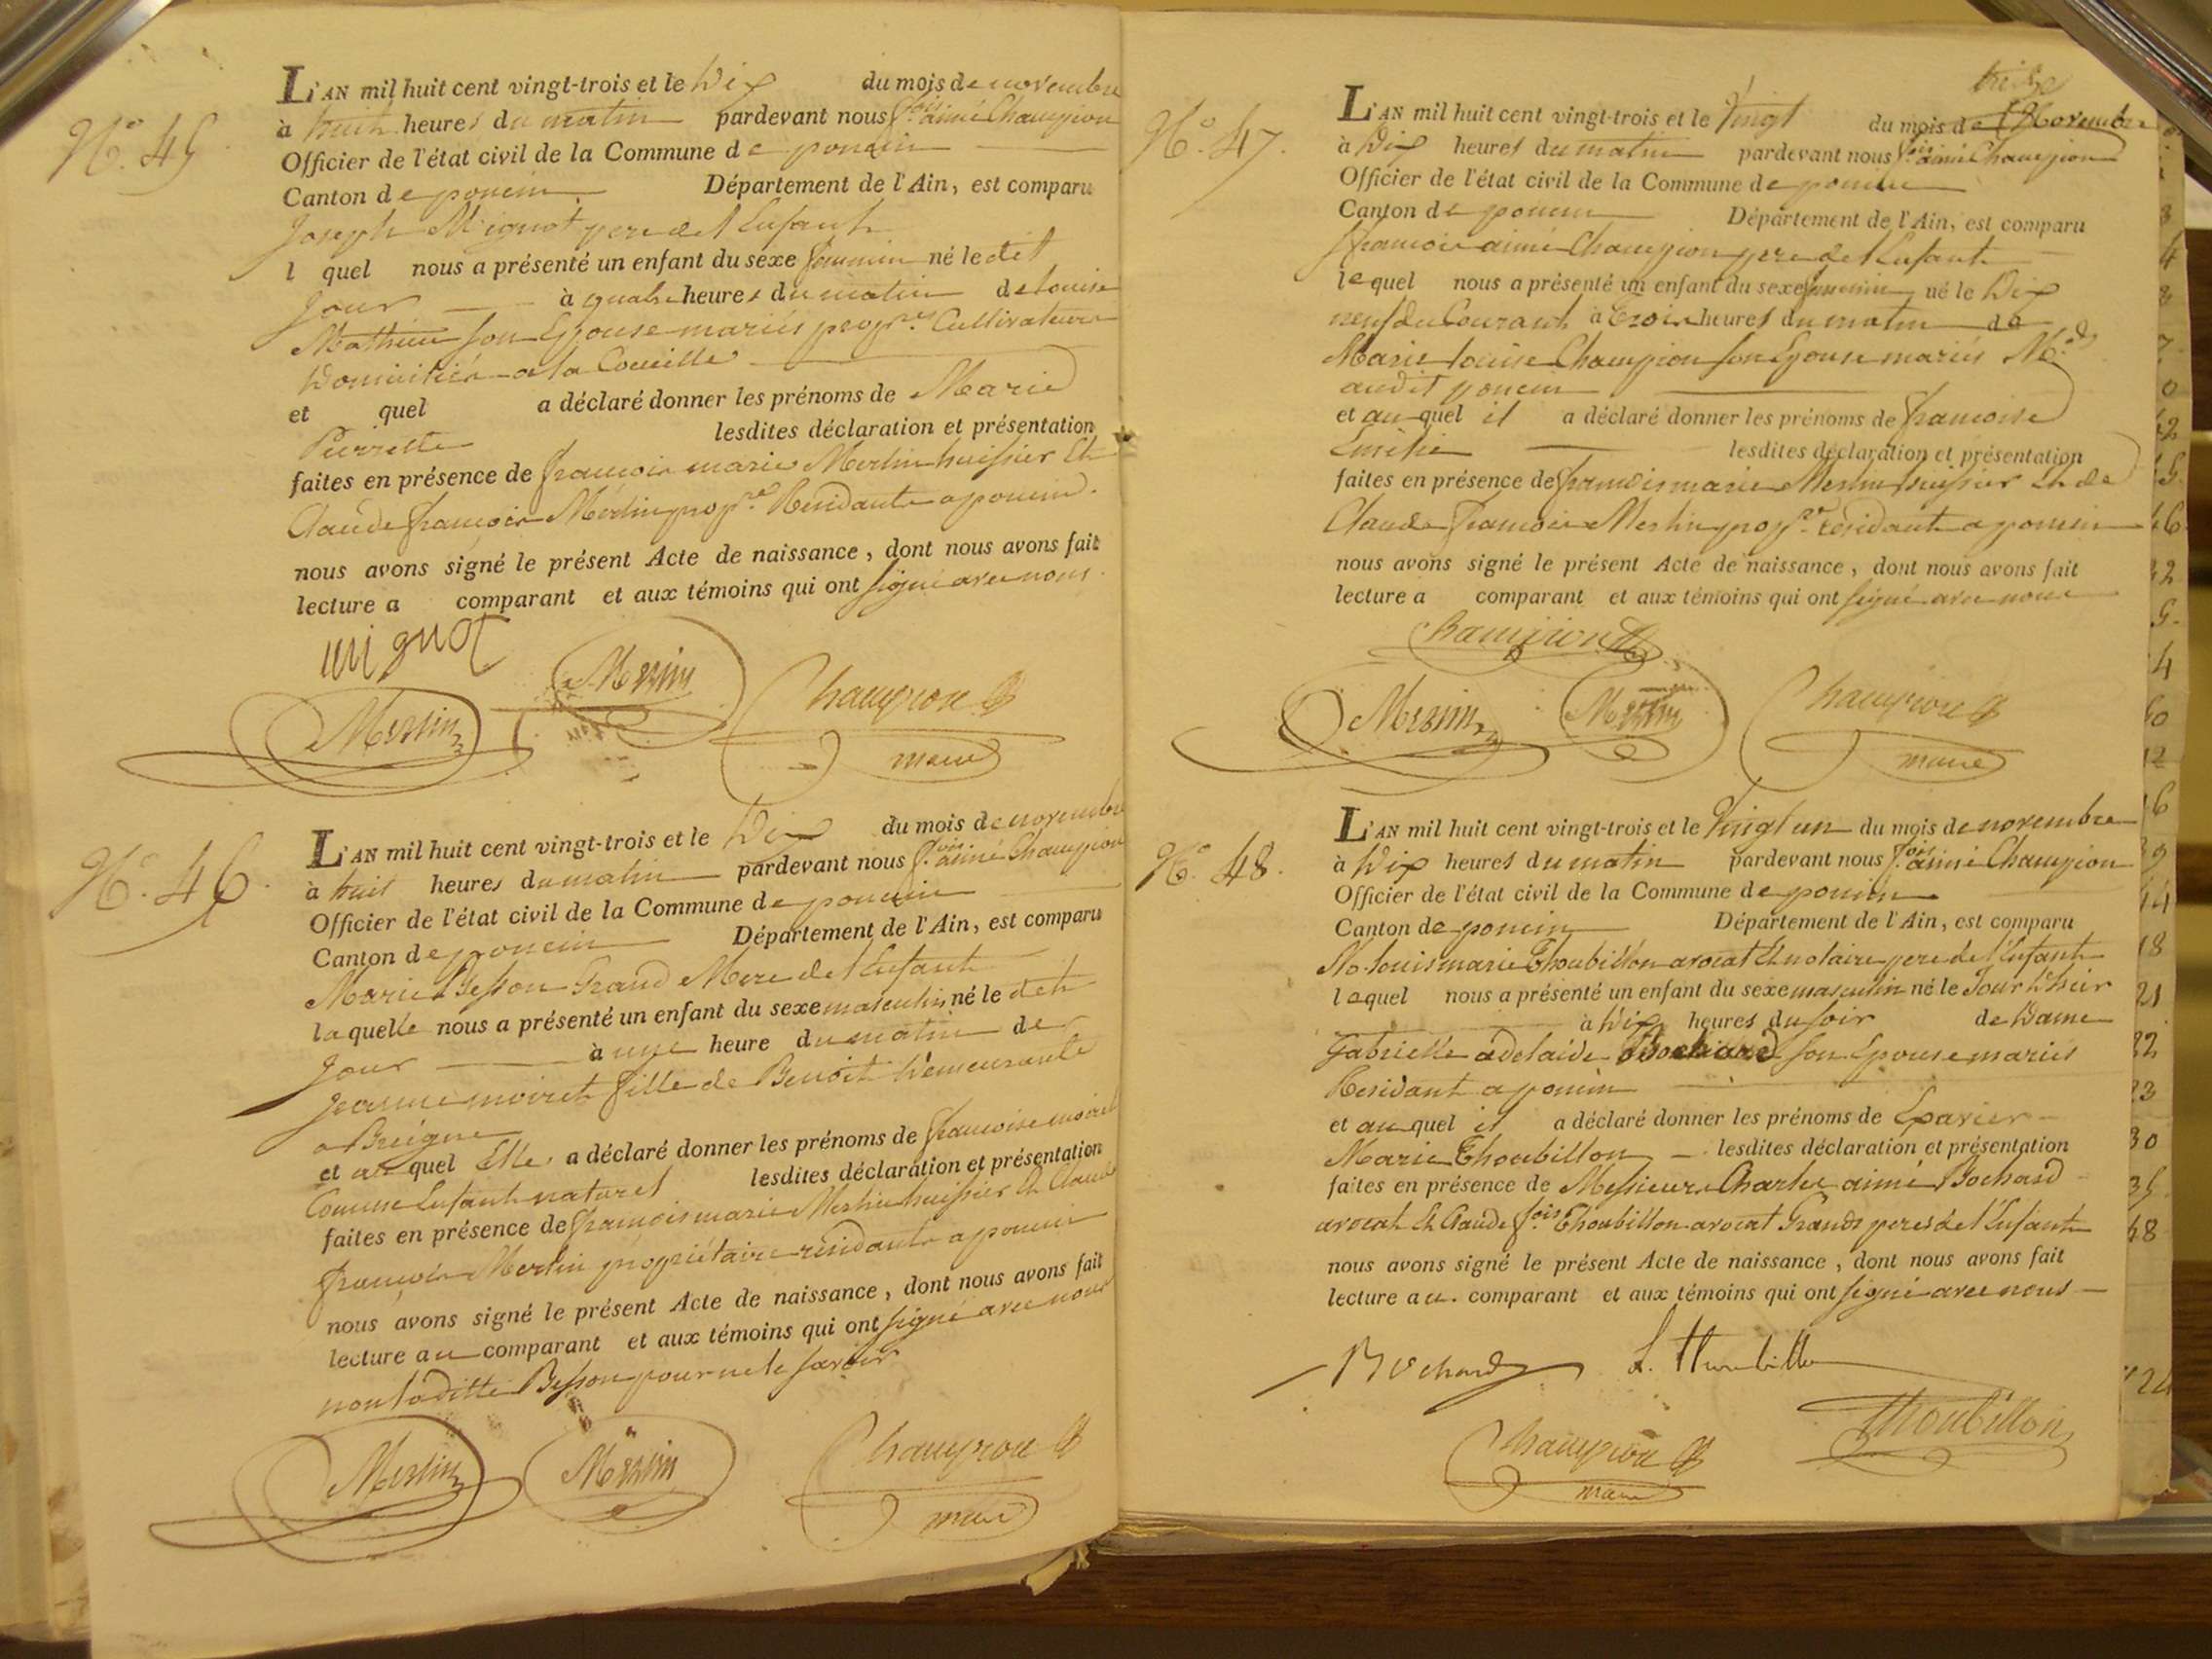 N.° 45
L'AN mil huit cent vingt-trois et le Dix du mois de novembre
à huit heures du matin pardevant nous f.ois aimé Champion
Officier de l'état civil de la Commune de poncin
Canton de poncin Département de l'Ain, est comparu
Joseph Mignot pere de l'Enfant
l quel nous a présenté un enfant du sexe feminin né le dit
Jour à quatre heures du matin de Louise
Mathieu son Epouse mariés prop.res Cultivateurs
Domiciliés a la Coueille
et quel a déclaré donner les prénoms de Marie
Pierrette lesdites déclaration et présentation
faites en présence de francois marie Merlin huissier Et
Claude francois Merlin prop.re Residants a poncin.
nous avons signé le présent Acte de naissance, dont nous avons fait
lecture a comparant et aux témoins qui ont signé avec nous.
mignot
Merlin Merlin Champion
maire
N.° 46.
L'AN mil huit cent vingt-trois et le Dix du mois de novembre
à huit heures du matin pardevant nous f.ois aimé Champion
Officier de l'état civil de la Commune de poncin
Canton de poncin Département de l'Ain, est comparu
Marie Besson Grand Mere de l'Enfant
laquelle nous a présenté un enfant du sexe masculin né le dit
Jour à une heure du matin de
Jeanne moiret fille de Benoit Demeurante
a Breigne
et au quel Elle a déclaré donner les prénoms de francoise moiret
Comme Enfant naturel lesdites déclaration et présentation
faites en présence de francois marie Merlin huissier Et Claude
francois Merlin propriétaire residants a poncin
nous avons signé le présent Acte de naissance, dont nous avons fait
lecture au comparant et aux témoins qui ont signé avec nous
non la ditte Besson pour ne le savoir
Merlin Merlin Champion
maire
N.° 47.
L'AN mil huit cent vingt-trois et le Vingt du mois de Novembre
à Dix heures du matin pardevant nous f.ois aimé Champion
Officier de l'état civil de la Commune de poncin
Canton de poncin Département de l'Ain, est comparu
francois aimé Champion pere de l'Enfant
lequel nous a présenté un enfant du sexe feminin né le Dix
neuf du Courant à Trois heures du matin de
Marie Louise Champion son Epouse mariés M.ds
audit poncin
et au quel il a déclaré donner les prénoms de francoise
Emilie lesdites déclaration et présentation
faites en présence de francois marie Merlin huissier Et de
Claude francois Merlin prop.re residants a poncin
nous avons signé le présent Acte de naissance, dont nous avons fait
lecture a comparant et aux témoins qui ont signé avec nous
Champion
Merlin Merlin Champion
maire
N.° 48.
L'AN mil huit cent vingt-trois et le Vingt un du mois de novembre
à Dix heures du matin pardevant nous f.ois aimé Champion
Officier de l'état civil de la Commune de poncin
Canton de poncin Département de l'Ain, est comparu
Louis marie Thoubillon avocat Et notaire pere de l'Enfant
lequel nous a présenté un enfant du sexe masculin né le Jour D'hier
à Dix heures du soir de Dame
Gabrielle adelaide Bochard son Epouse mariés
Residant a poncin
et au quel il a déclaré donner les prénoms de Exavier
Marie Thoubillon lesdites déclaration et présentation
faites en présence de Messieurs Charles aimé Bochard
avocat Et Claude f.ois Thoubillon avocat Grands peres de l'Enfant
nous avons signé le présent Acte de naissance, dont nous avons fait
lecture au. comparant et aux témoins qui ont signé avec nous
Bochard L. Thoubillon
Champion Thoubillon
maire